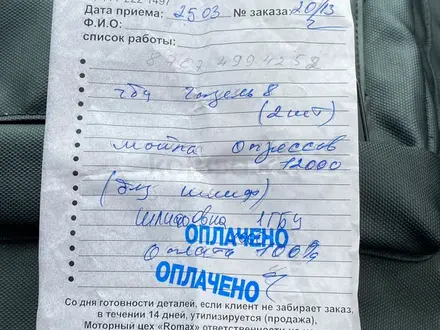 Дата приема: 25.03 № заказа: 20/13
Ф.И.О:
список работы:
гбц Газель 8
(2 шт)
мойка Опрессов
12000
(без шлиф)
шлифовка 1 ГБЦ
ОПЛАЧЕНО
Оплата 100%
ОПЛАЧЕНО
Со дня готовности деталей, если клиент не забирает заказ,
в течении 14 дней, утилизируется (продажа).
Моторный цех «Romax»